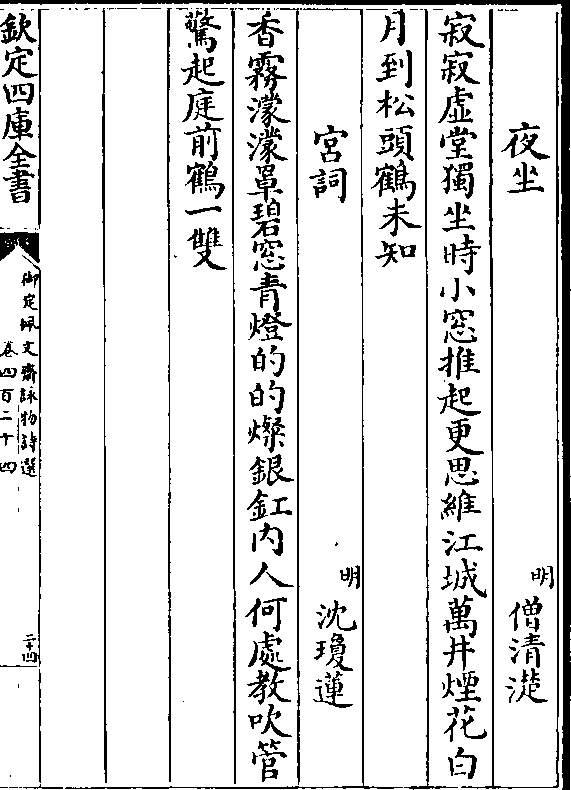 夜坐
明 僧清濋
寂寂虛堂獨坐時小窓推起更思維江城萬井煙花白
月到松頭鶴未知
宮詞
明 沈瓊蓮
香霧濛濛罩碧窓青燈的的燦銀釭内人何處教吹管
驚起庭前鶴一雙
欽定四庫全書
御定佩文齋詠物詩選
卷四百二十四
二十四